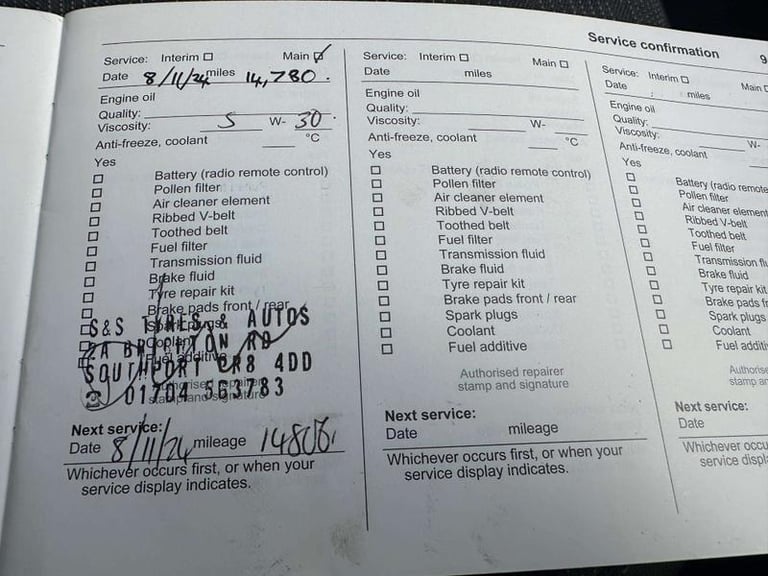 Service confirmation 9
Service: Interim Main
Date 8/11/24 miles 14,780.
Engine oil
Quality:
Viscosity: 5 W- 30
Anti-freeze, coolant °C
Yes
Battery (radio remote control)
Pollen filter
Air cleaner element
Ribbed V-belt
Toothed belt
Fuel filter
Transmission fluid
Brake fluid
Tyre repair kit
Brake pads front / rear
Spark plugs
Coolant
Fuel additive
S&S TYRES & AUTOS
2A BRIGHTON RD
SOUTHPORT PR8 4DD
01704 563783
Authorised repairer
stamp and signature
Next service:
Date 8/11/24 mileage 14808.
Whichever occurs first, or when your
service display indicates.
Service: Interim Main
Date miles
Engine oil
Quality:
Viscosity: W-
Anti-freeze, coolant °C
Yes
Battery (radio remote control)
Pollen filter
Air cleaner element
Ribbed V-belt
Toothed belt
Fuel filter
Transmission fluid
Brake fluid
Tyre repair kit
Brake pads front / rear
Spark plugs
Coolant
Fuel additive
Authorised repairer
stamp and signature
Next service:
Date mileage
Whichever occurs first, or when your
service display indicates.
Service: Interim Main
Date miles
Engine oil
Quality:
Viscosity: W-
Anti-freeze, coolant
Yes
Battery (radio remote
Pollen filter
Air cleaner element
Ribbed V-belt
Toothed belt
Fuel filter
Transmission flu
Brake fluid
Tyre repair kit
Brake pads fr
Spark plugs
Coolant
Fuel additi
Authorise
stamp an
Next service:
Date
Whichever occu
service displ